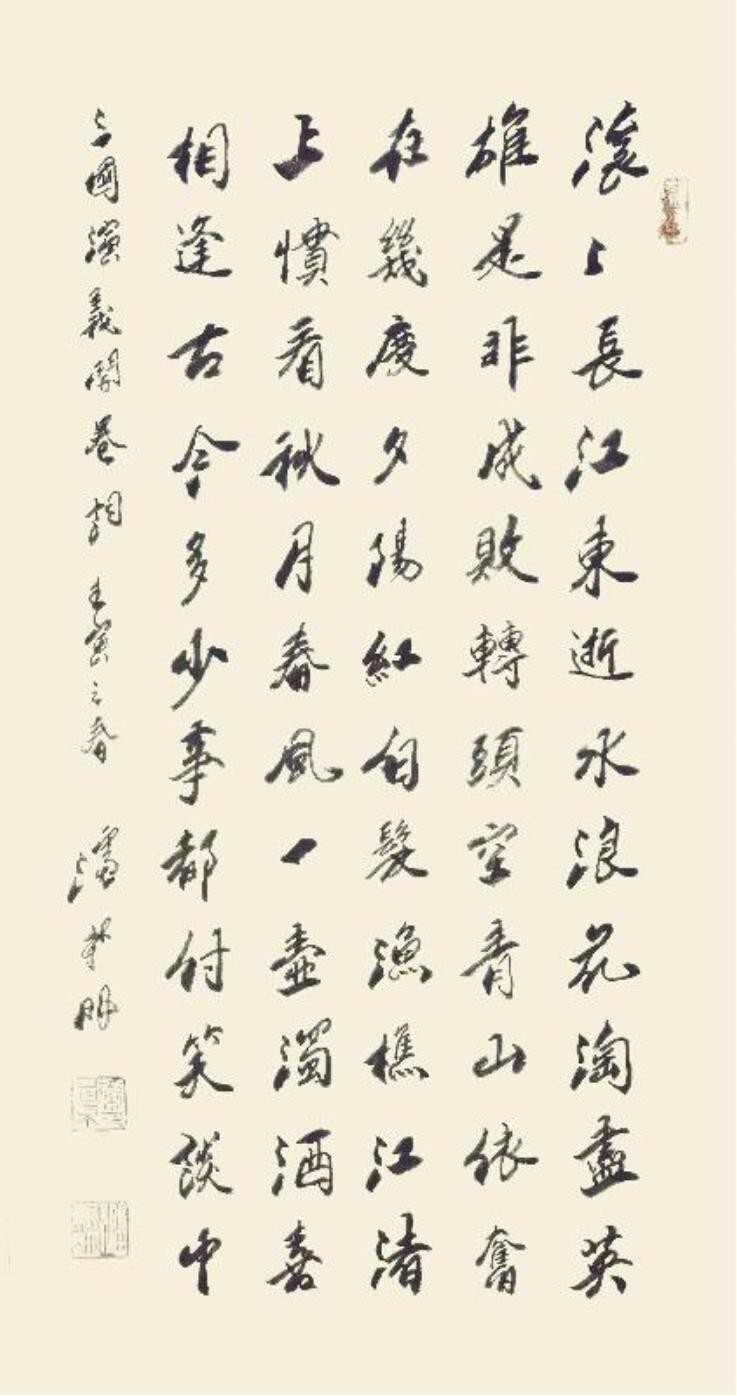 滾〻長江東逝水浪花淘盡英
雄是非成敗轉頭空青山依舊
在幾度夕陽紅白髮漁樵江渚
上慣看秋月春風一壺濁酒喜
相逢古今多少事都付笑談中
三國演義開卷詞 壬寅之春 潘 明